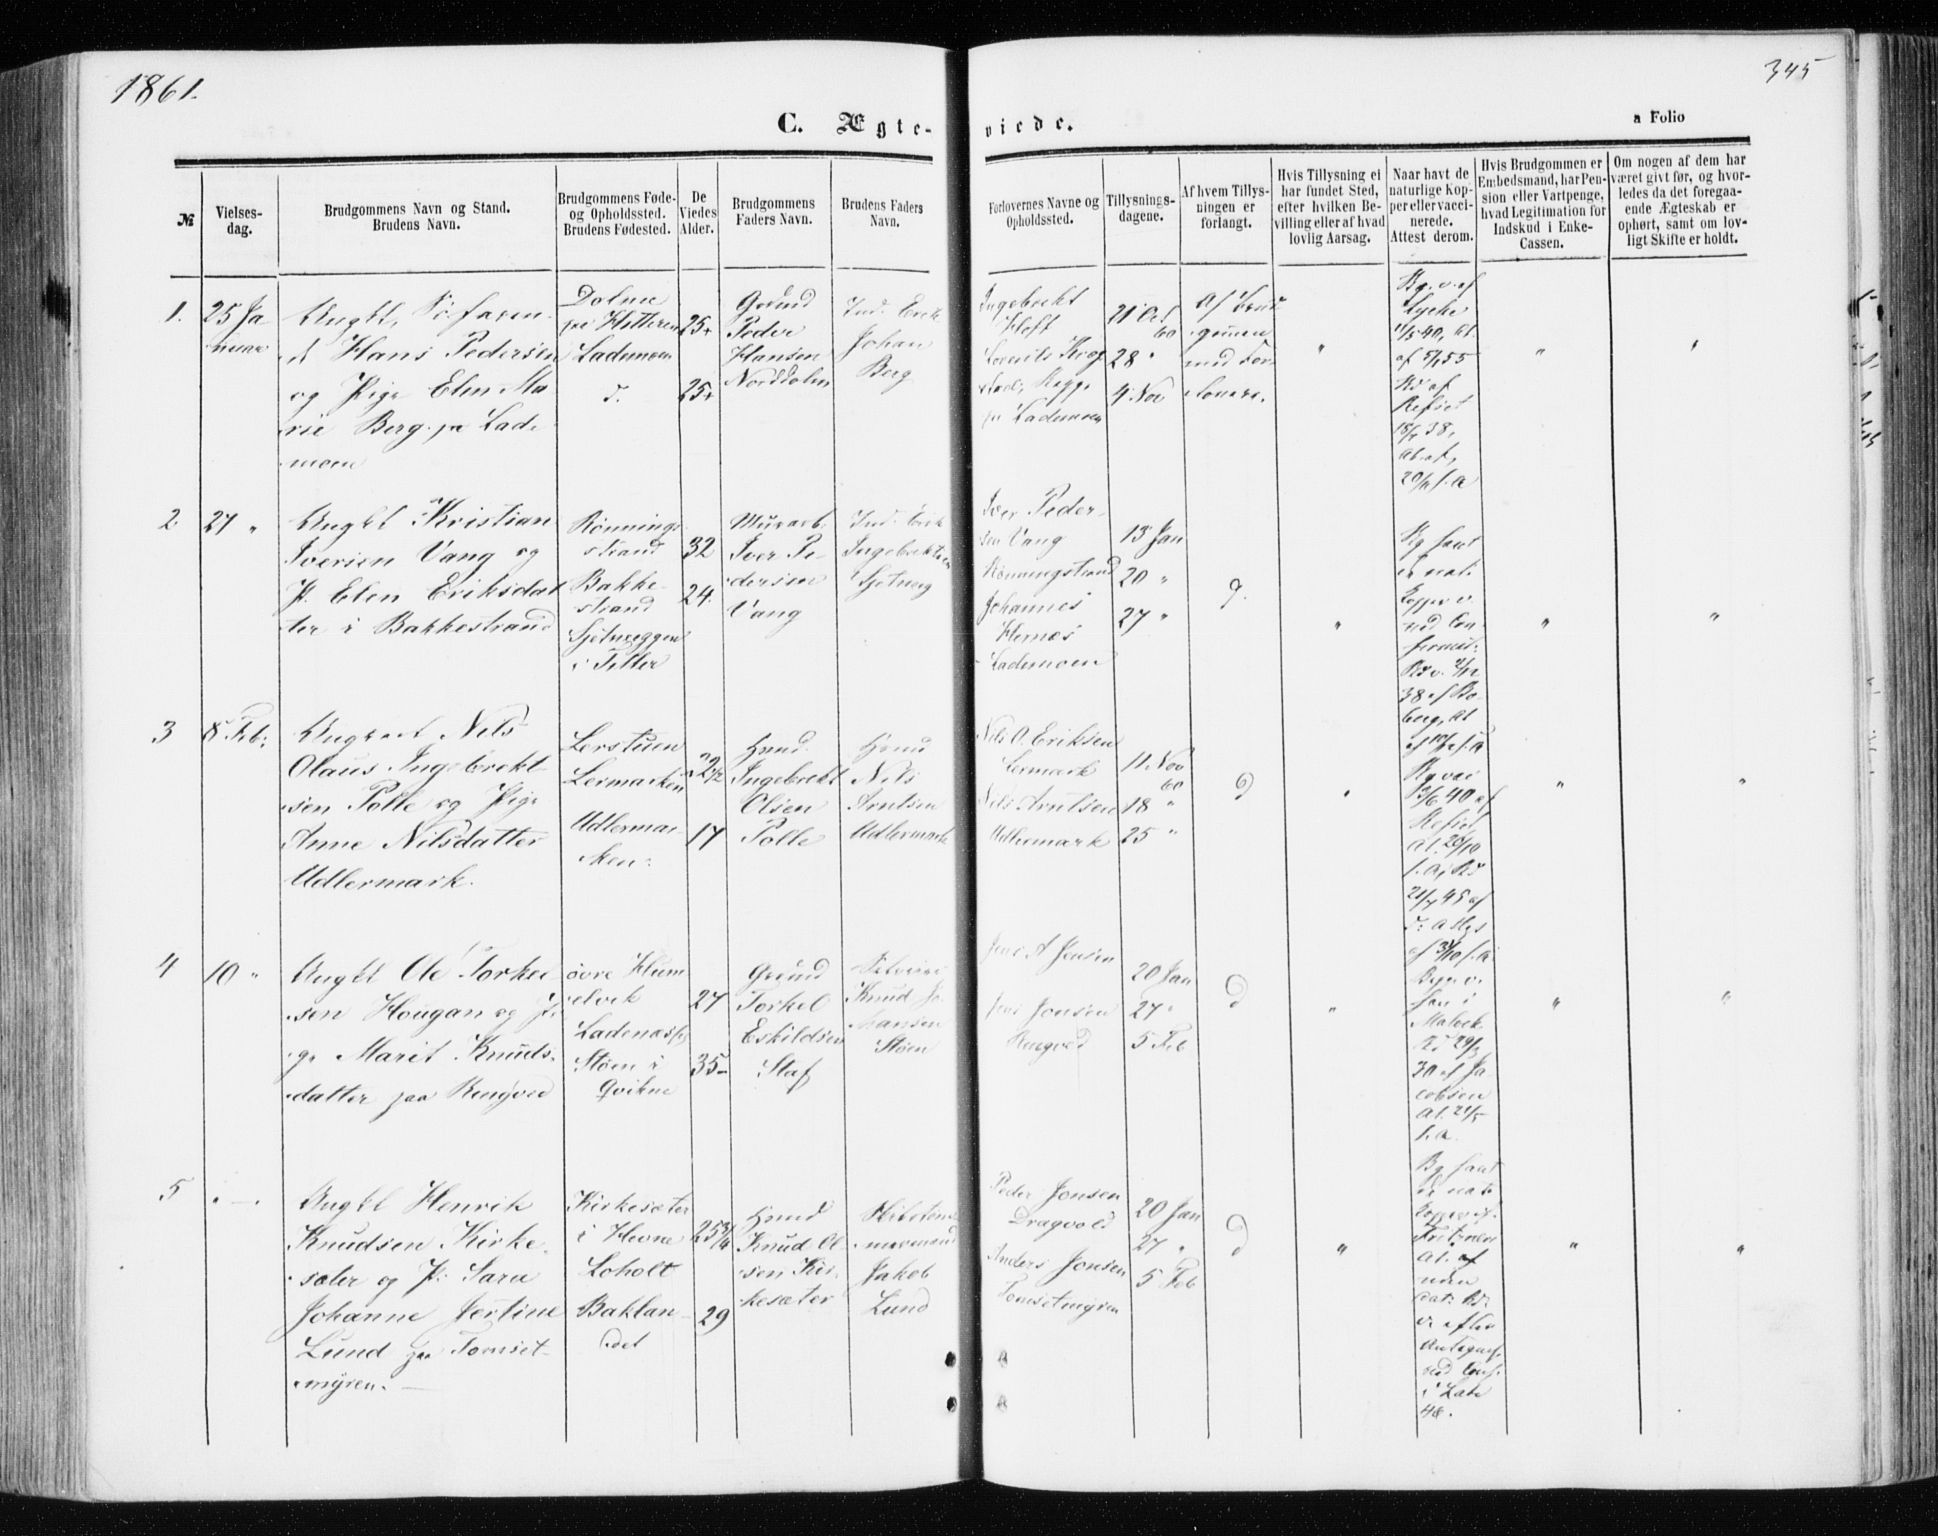 1861.
345
C. Ægte-
viede.
a Folio
№
Vielses-
dag.
Brudgommens Navn og Stand.
Brudens Navn.
Brudgommens Føde-
og Opholdssted.
Brudens Fødested.
De
Viedes
Alder.
Brudgommens
Faders Navn.
Brudens Faders
Navn.
Forlovernes Navne og
Opholdssted.
Tillysnings-
dagene.
Af hvem Tillys-
ningen er
forlangt.
Hvis Tillysning ei
har fundet Sted,
efter hvilken Be-
villing eller af hvad
lovlig Aarsag.
Naar havt de
naturlige Kop-
per eller vacci-
nerede.
Attest derom.
Hvis Brudgommen er
Embedsmand, har Pen-
sion eller Vartpenge,
hvad Legitimation for
Indskud i Enke-
Cassen.
Om nogen af dem har
været givt før, og hvor-
ledes da det foregaa-
ende Ægteskab er
ophørt, samt om lov-
ligt Skifte er holdt.
1.
25 Ja
nuar
Ungkl,
Hans Pedersen
og Pige Elen Ma
rie Berg. pa Lade
moen
Dolmø
paa Hitteren
Lademoen
d.
25+
25+
Grund
Peder
Hansen
Norddolm
Ind. Erik
Johan
Berg
Ingebrekt
Hoft
Lademoen
21 Oct
60
28 "
4 Nov
Af Brud
gommen
med For
lovere.
"
Bg. v. af
Lycke
11/5 40, At.
af 5/1 55
Bd af
Refset
18/7 38,
At. af,
"
"
2
27 "
Ungkl Kristian
Iversen Vang og
P. Elen Eriksdat
ter i Bakkestrand
Rønnings
strand
Bakke
strand
Sjetneggen
i Tiller
32
24.
Murarb.
Iver Pe
dersen
Vang
Ind. Erik
Ingebrektsen
Sjetneg
Iver Peder
sen Vang
Rønningstrand
Johannes
Hernæs
Lademoen
13 Jan
20 "
27 "
d.
"
Bg havt
de nat.
Kopper v.
ved Con
firmat:
38 af Bo
berg, At
"
"
3
8 Feb:
Ungkarl Nils
Olaus Ingebrekt
sen Polle og Pige
Anne Nilsdatter
Udlermark.
Lerstuen
Lermarken
Udlermar
ken.
22 1/2
17
Hmd.
Ingebrekt
Olsen
Polle
Hmd
Nils
Arntsen
Udlermark
Nils O. Eriksen
Lermark
Nils Arntsen
Udlermark
11 Nov
60
18 "
25 "
d
"
Bg vac
13/6 40 af
Refset
At. 26/10
f. A, Bd
21/7 45 af
"
"
4
10 "
Ungkl Ole Torkel
sen Hougan og Pi
ge Marit Knuds
datter paa Ringved
øvre Hum
elvik
Støen i
Qvikne
27
35
Grund
Torkel
Eskildsen
Staf
Knud Jo
hansen
Støen
Jens A Jensen
Jens Jonsen
Ringved
20 Jan
27 "
5 Feb
d
"
Begge v.
Bd 29/3
30 af Ja
cobsen
At. 21/5
f. a.
"
"
5
" — "
Ungkl Henrik
Knudsen Kirke
sæter og P. Sara
Johanne Jertine
Lund paa Tomset
myren. —
Kirkesæter
i Hevne
Loholt
Baklan
det
25 3/4
29
Hmd
Knud Ol
sen Kir
kesæter
Jakob
Lund
Peder Jonsen
Dragvold
Anders Jonsen
Tomsetmyren
20 Jan
27 "
5 Feb
d
"
Bg havt
de nat.
Kopper af
Fritzner
At. af
uden
dat: Bd:
v. efter
ved Conf.
i Lade
48.
"
"